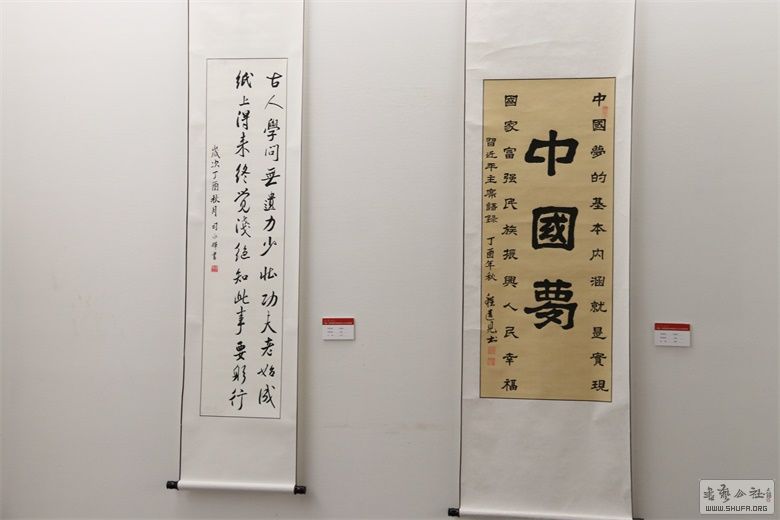 古人學問無遺力少壯功夫老始成
紙上得来終覺淺絕知此事要躬行
歲次丁酉秋月
書
中國夢的基本内涵就是實現
中國夢
國家富强民族振興人民幸福
習近平主席語錄 丁酉年秋
WWW.SHUFA.ORG